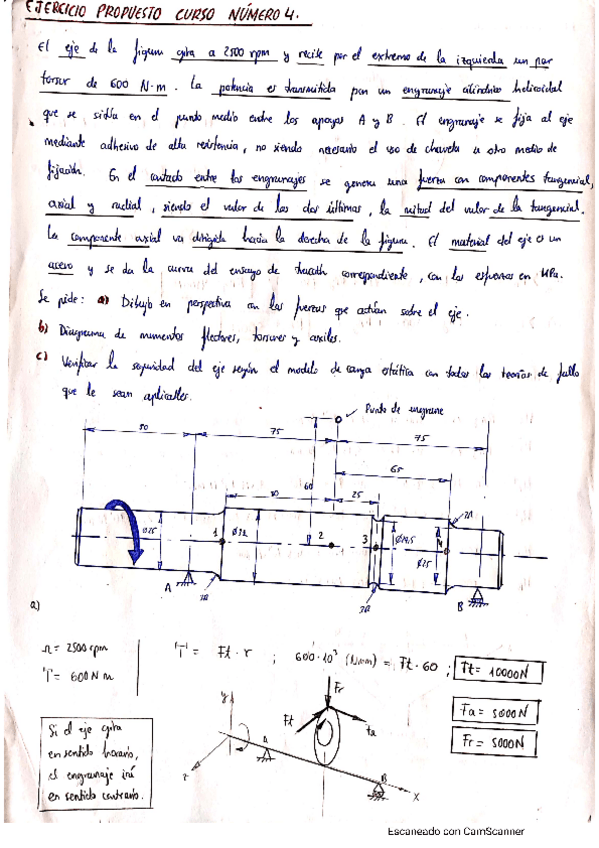 EJERCICIO PROPUESTO CURSO NÚMERO 4.
El eje de la figura gira a 2500 rpm y recibe por el extremo de la izquierda un par
torsor de 600 N·m. La potencia es transmitida por un engranaje cilíndrico helicoidal
que se sitúa en el punto medio entre los apoyos A y B. El engranaje se fija al eje
mediante adhesivo de alta resistencia, no siendo necesario el uso de chaveta u otro medio de
fijación. En el contacto entre los engranajes se genera una fuerza con componentes tangencial,
axial y radial, siendo el valor de las dos últimas, la mitad del valor de la tangencial.
La componente axial va dirigida hacia la derecha de la figura. El material del eje es un
acero y se da la curva del ensayo de tracción correspondiente, con los esfuerzos en MPa.
Se pide: a) Dibujo en perspectiva con las fuerzas que actúan sobre el eje.
b) Diagrama de momentos flectores, torsores y axiles.
c) Verificar la seguridad del eje según el modelo de carga estática con todas las teorías de fallo
que le sean aplicables.
Punto de engrane
50
75
75
65
60
25
Ø25
1
Ø32
2
3
Ø25
4
A
B
a)
n = 2500 rpm
T = 600 N m
T = Ft · r ; 600·10³ (N·mm) = Ft · 60 ; Ft = 10000N
Fa = 5000N
Fr = 5000N
Si el eje gira
en sentido horario,
el engranaje irá
en sentido contrario.
y
Fr
Ft
Fa
A
B
x
z
Escaneado con CamScanner